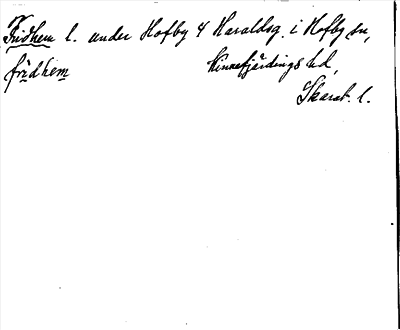 Fridhem l. under Hofby 4 Haraldsg. i Hofby sn,
fridhem Kinnefjärdings hd,
Skarab. l.